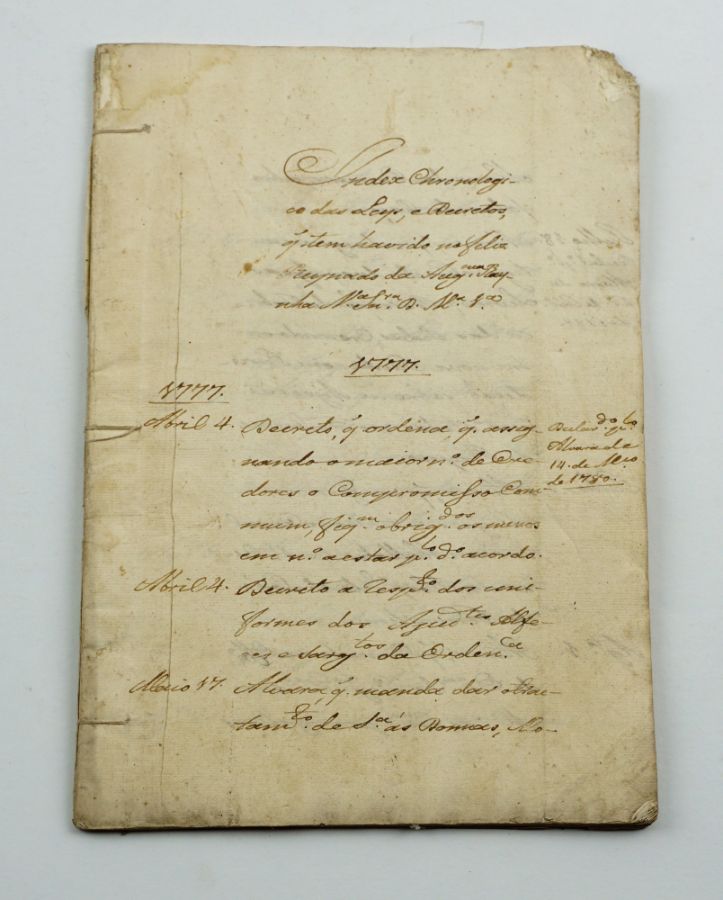 Index Chronologi-
co das Leys, e Decretos,
q̃ tem havido no feliz
Reynado da Aug.ma Ray-
nha N.a Sn.ra D. M.a 1.a
1777.
1777.
Abril 4. Decreto, q̃ ordena, q̃ assig-
nando o maior n.o de Cre-
dores o Compromisso Com-
mum, fiq.m obrig.dos os menos
em n.o a estar p.lo d.o acordo.
Declar.do p.lo
Alvara de
14. de M.ço
de 1780.
Abril 4. Decreto a resp.to dos uni-
formes dos Ajud.tes Alfe-
res e Sarg.tos da Orden.ca
Maio 17. Alvara, q̃ manda dar o trac-
tam.to de S.a ás Donnas, Mo-